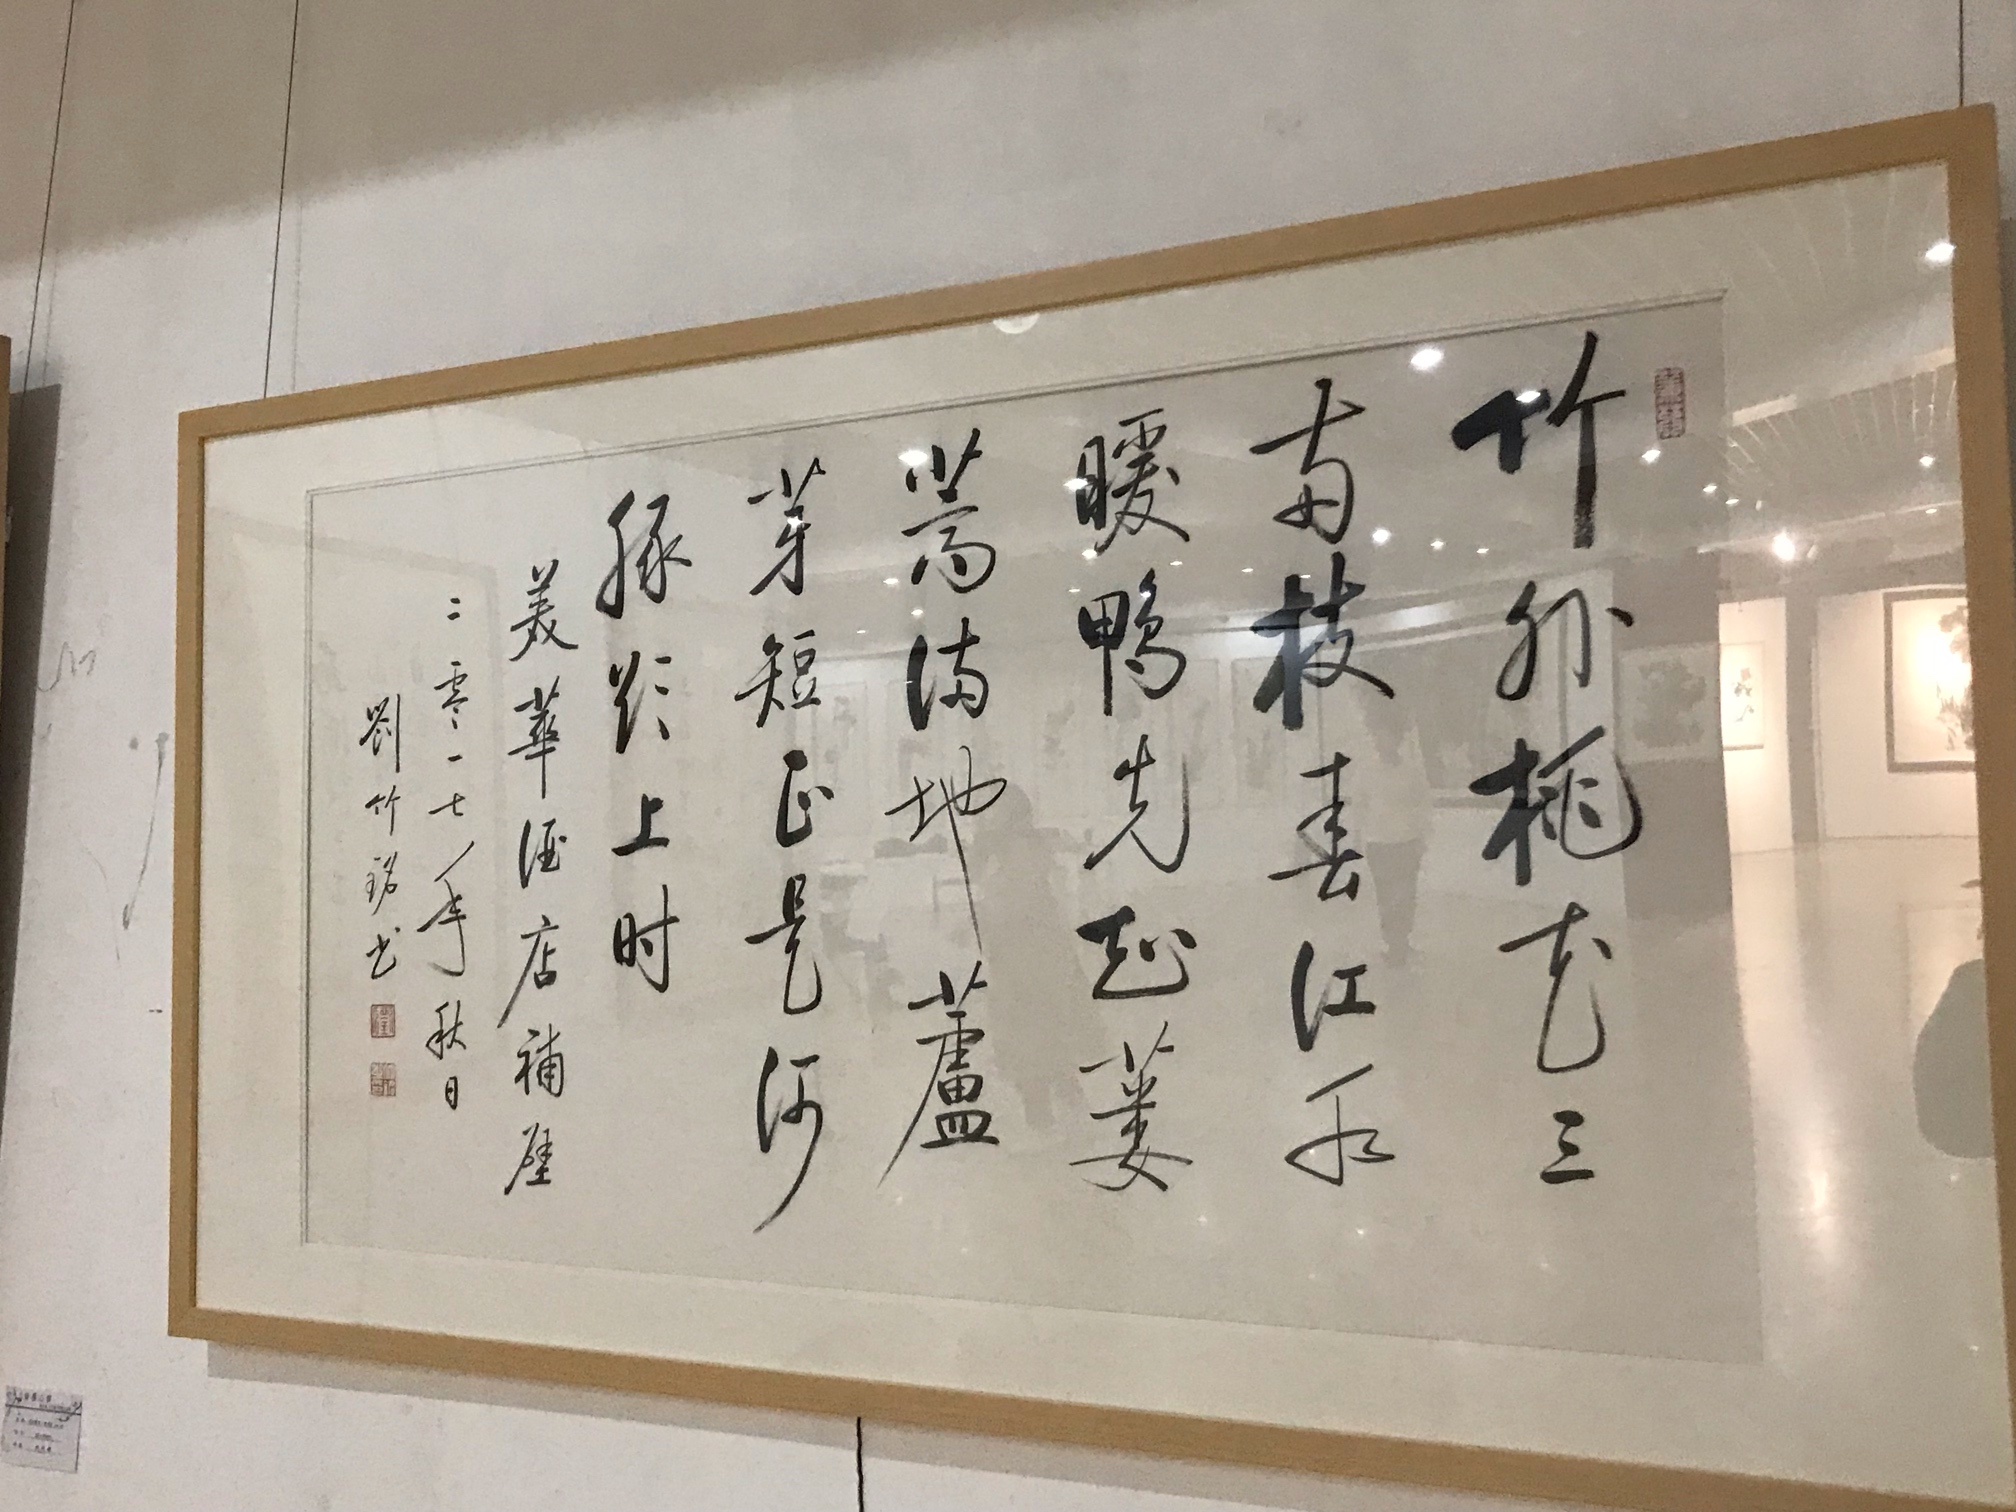 竹外桃花三
两枝春江水
暖鸭先知蒌
蒿满地蘆
芽短正是河
豚欲上时
美華酒店補壁
二零一七年秋日
劉竹铭书